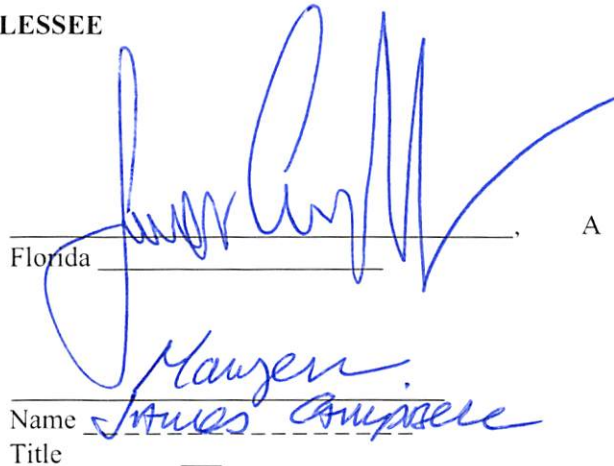 LESSEE
, A
Florida
Manger
Name James Campbell
Title